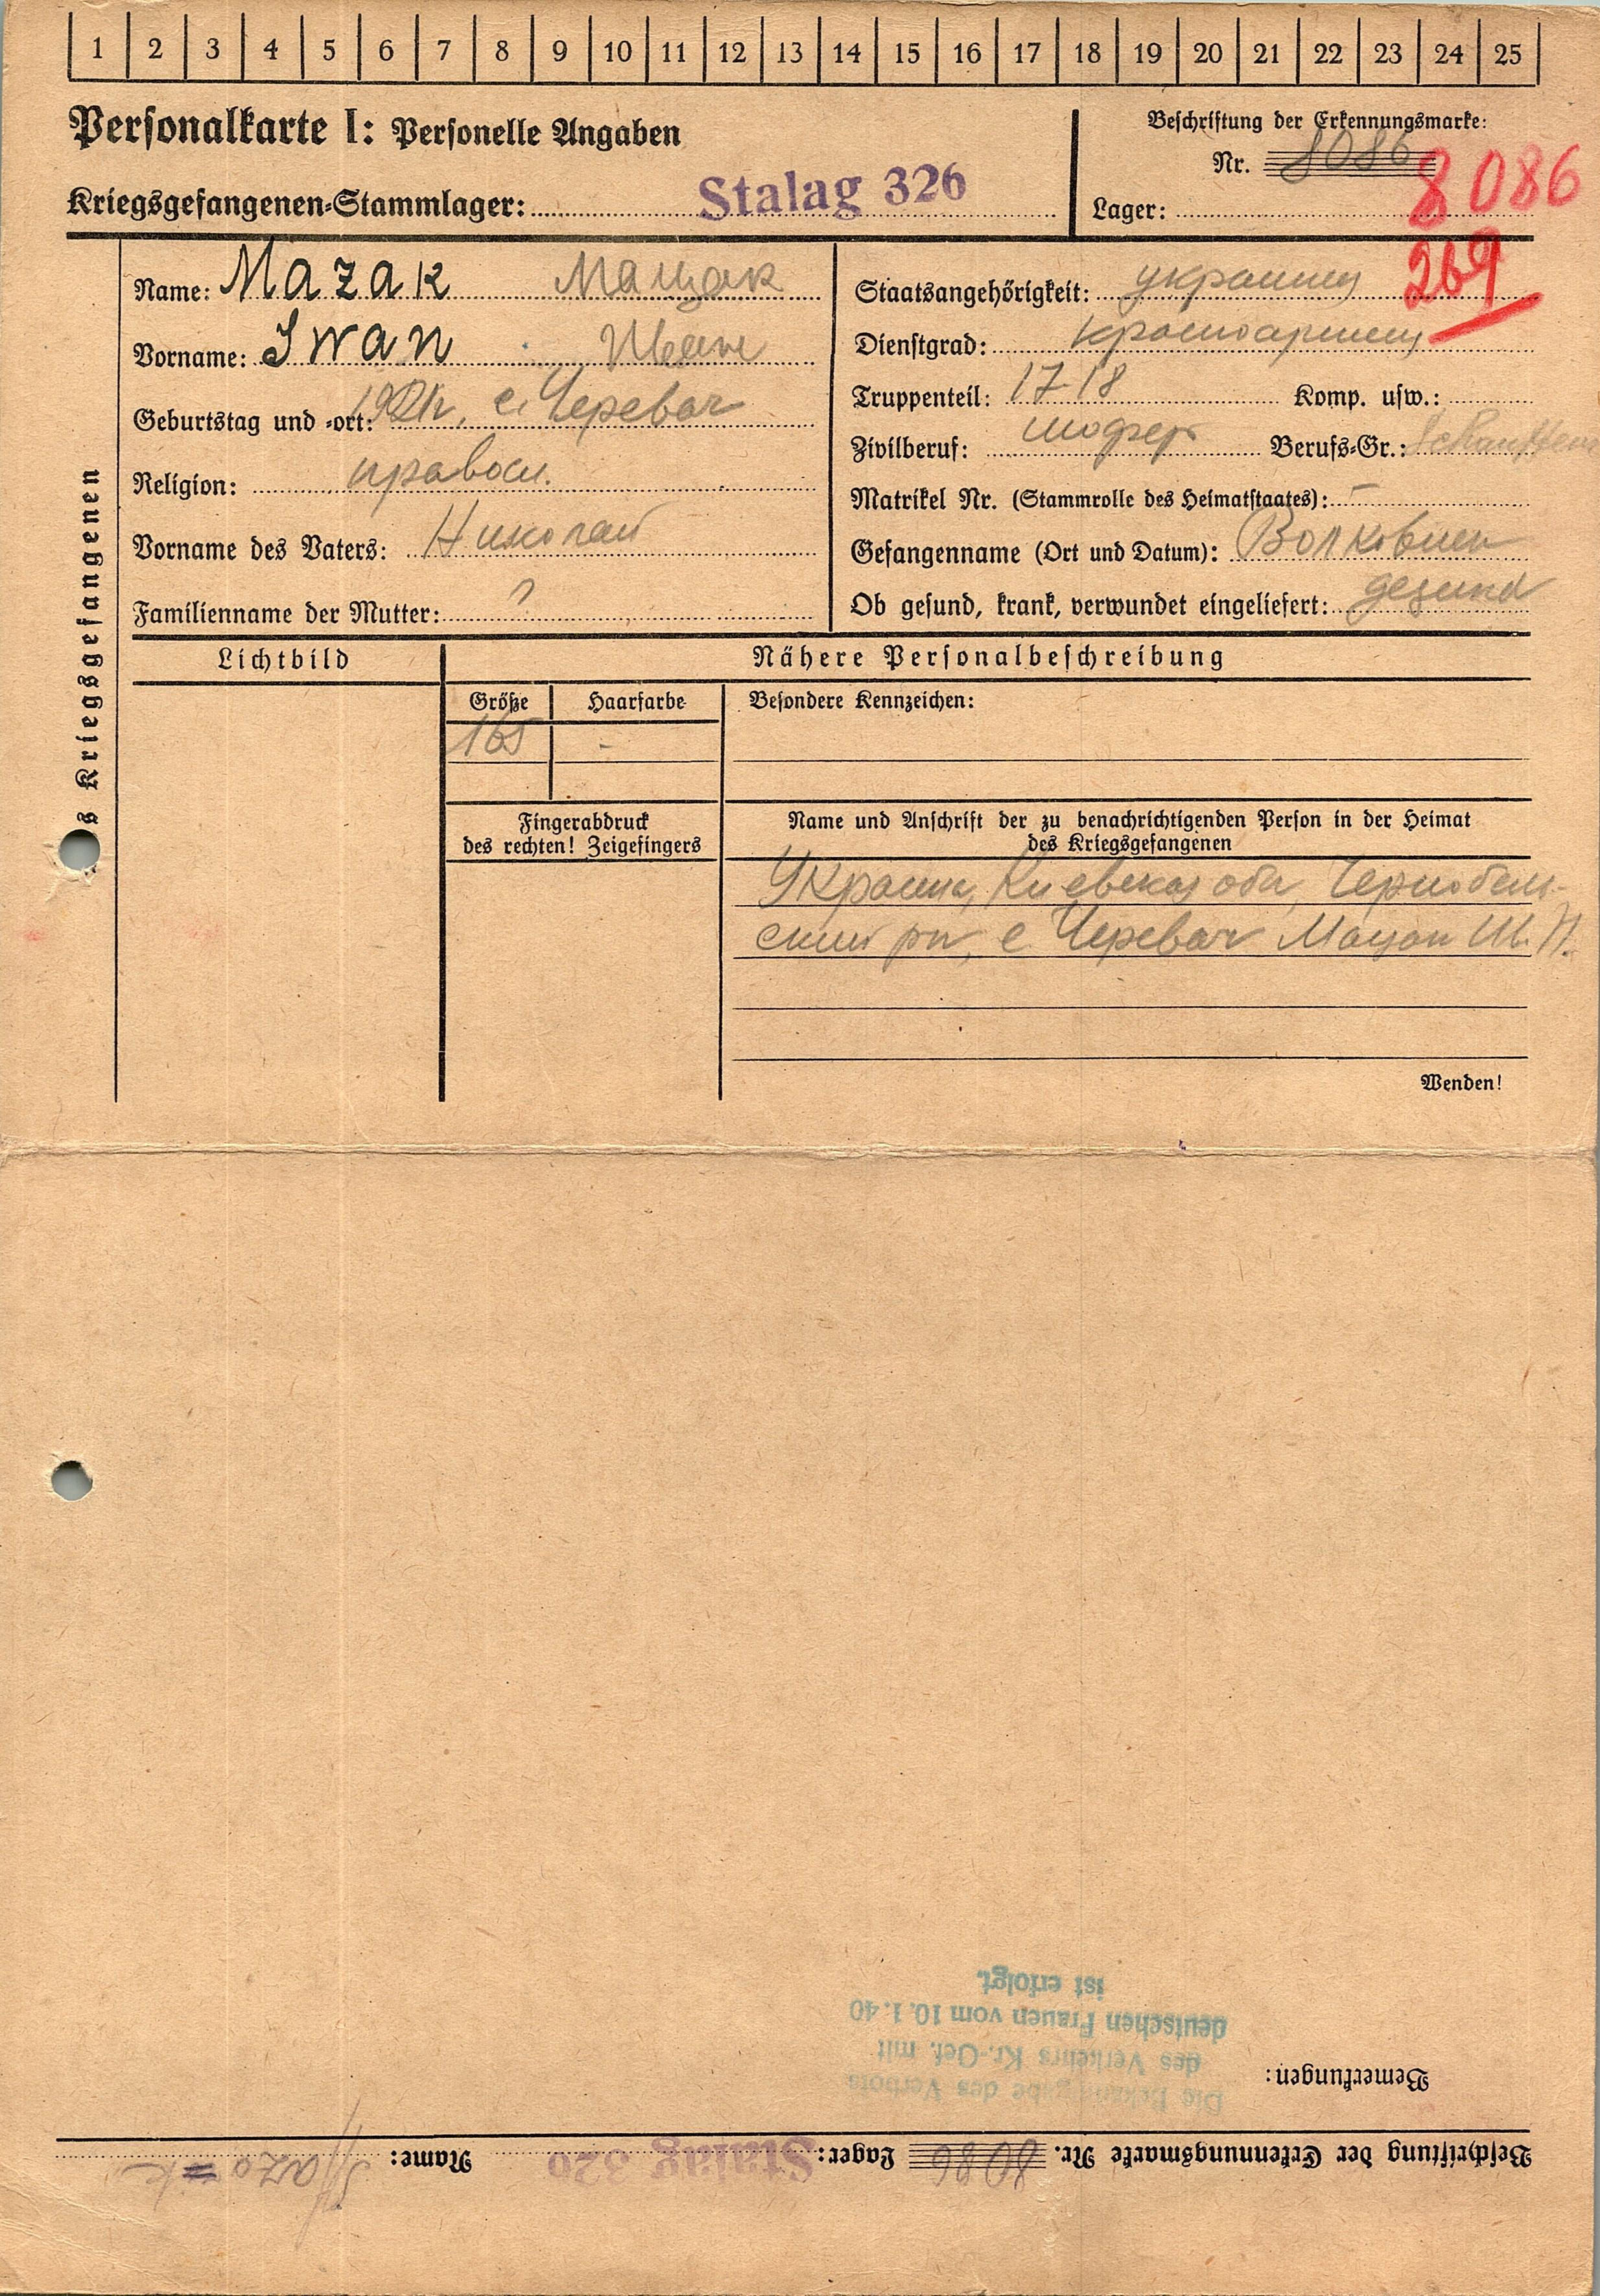 1 2 3 4 5 6 7 8 9 10 11 12 13 14 15 16 17 18 19 20 21 22 23 24 25
Personalkarte I: Personelle Angaben
Kriegsgefangenen-Stammlager: Stalag 326
Beschriftung der Erkennungsmarke:
Nr. 8086 8086
Lager:
269
Kriegsgefangenen
Name: Mazak Мацак
Vorname: Iwan Иван
Geburtstag und -ort: с. Черевач
Religion: правосл.
Vorname des Vaters: Николай
Familienname der Mutter: ?
Staatsangehörigkeit: украинец
Dienstgrad: красноармеец
Truppenteil: 17-18 Komp. usw.:
Zivilberuf: шофер Berufs-Gr.:
Matrikel Nr. (Stammrolle des Heimatstaates): –
Gefangenname (Ort und Datum):
Ob gesund, krank, verwundet eingeliefert: gesund
Lichtbild
Nähere Personalbeschreibung
Größe Haarfarbe Besondere Kennzeichen:
165 -
Fingerabdruck
des rechten! Zeigefingers
Name und Anschrift der zu benachrichtigenden Person in der Heimat
des Kriegsgefangenen
Украина, Киевская обл, Чернобыль-
ский рн, с. Черевач Мацак И. Н.
Wenden!
Beschriftung der Erkennungsmarke Nr. 8086 Lager: Stalag 326 Name: Mazak
Bemerkungen:
Die Bekanntgabe des Verbots
des Verkehrs Kr.-Gef. mit
deutschen Frauen vom 10.1.40
ist erfolgt.